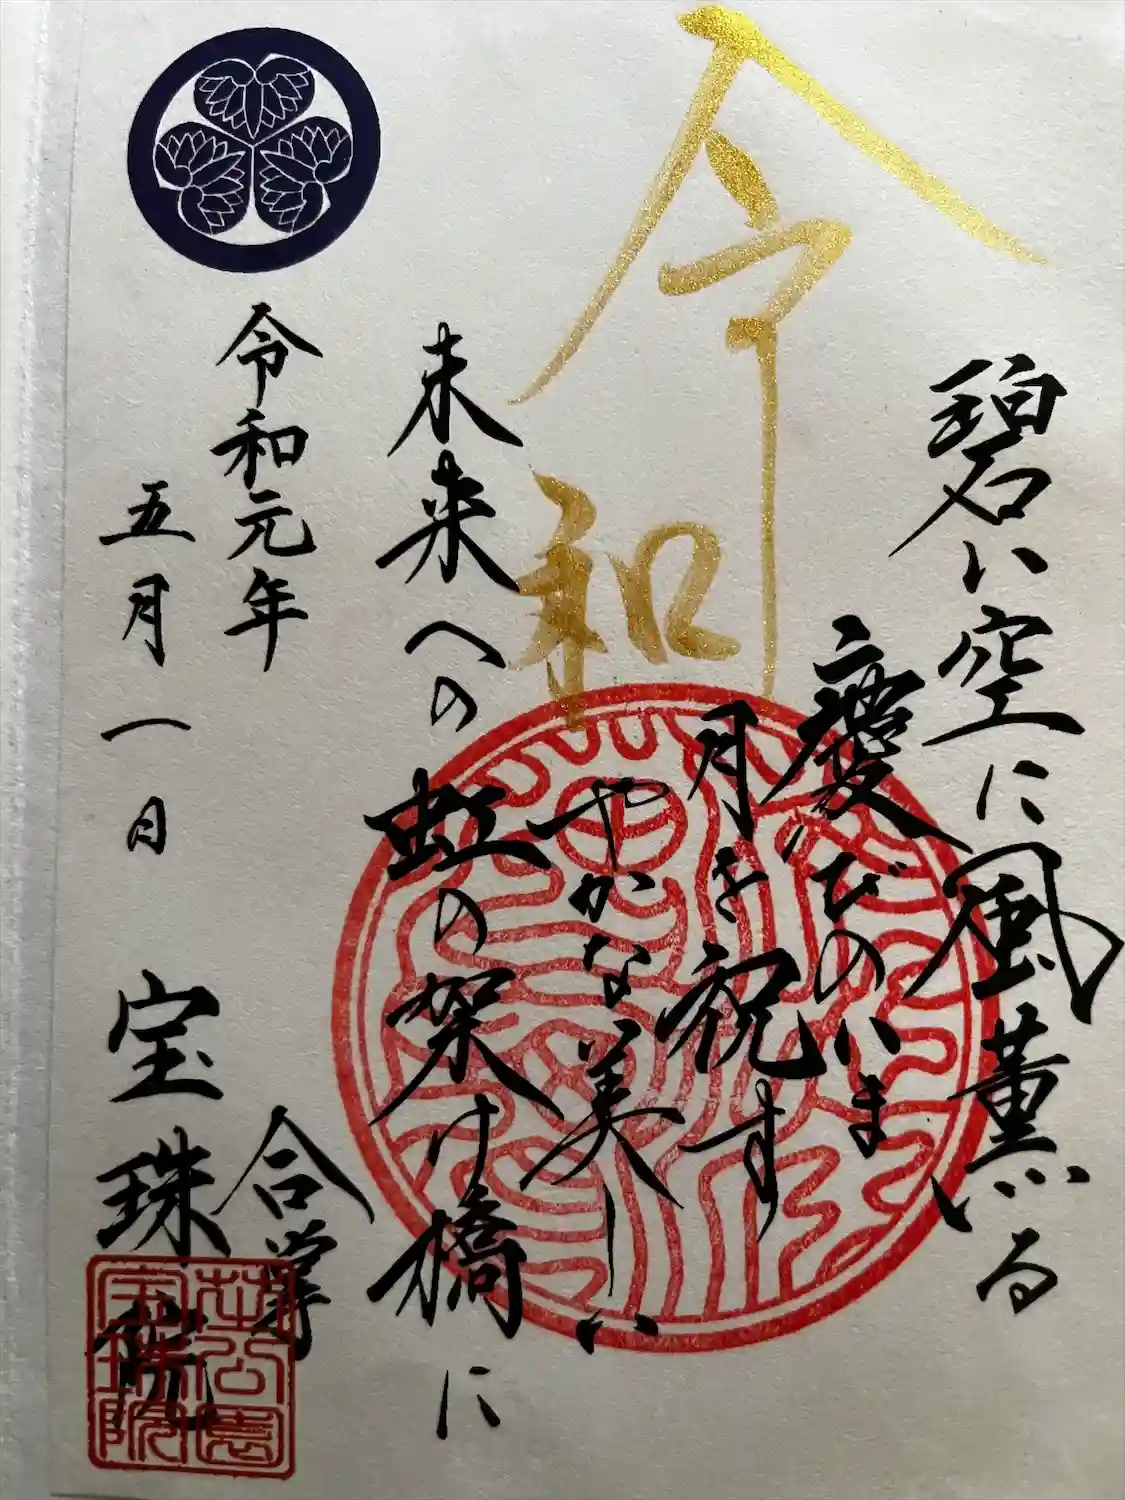 碧い空に風薫る
慶びのいま
令月を祝す
和やかな美しい
未来への虹の架け橋に
令和元年
五月一日
合掌
宝珠院
芝公園
宝珠院